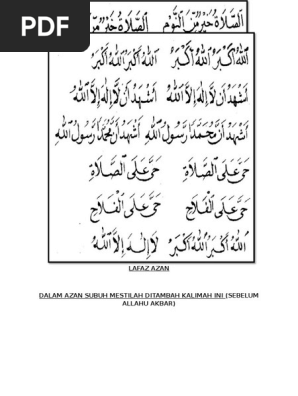 PDF
الصَّلَاةُ خَيْرٌ مِّنَ النَّوْمِ الصَّلَاةُ خَيْرٌ مِّنَ
اَللّٰهُ اَكْبَرُ اَللّٰهُ اَكْبَرُ اَللّٰهُ اَكْبَرُ اَللّٰهُ اَكْبَرُ
اَشْهَدُ اَنْ لَّا اِلٰهَ اِلَّا اللّٰهُ اَشْهَدُ اَنْ لَّا اِلٰهَ اِلَّا اللّٰهُ
اَشْهَدُ اَنَّ مُحَمَّدًا رَّسُولُ اللّٰهِ اَشْهَدُ اَنَّ مُحَمَّدًا رَّسُولُ اللّٰهِ
حَيَّ عَلَى الصَّلَاةِ حَيَّ عَلَى الصَّلَاةِ
حَيَّ عَلَى الْفَلَاحِ حَيَّ عَلَى الْفَلَاحِ
اَللّٰهُ اَكْبَرُ اَللّٰهُ اَكْبَرُ لَا اِلٰهَ اِلَّا اللّٰهُ
LAFAZ AZAN
DALAM AZAN SUBUH MESTILAH DITAMBAH KALIMAH INI (SEBELUM
ALLAHU AKBAR)